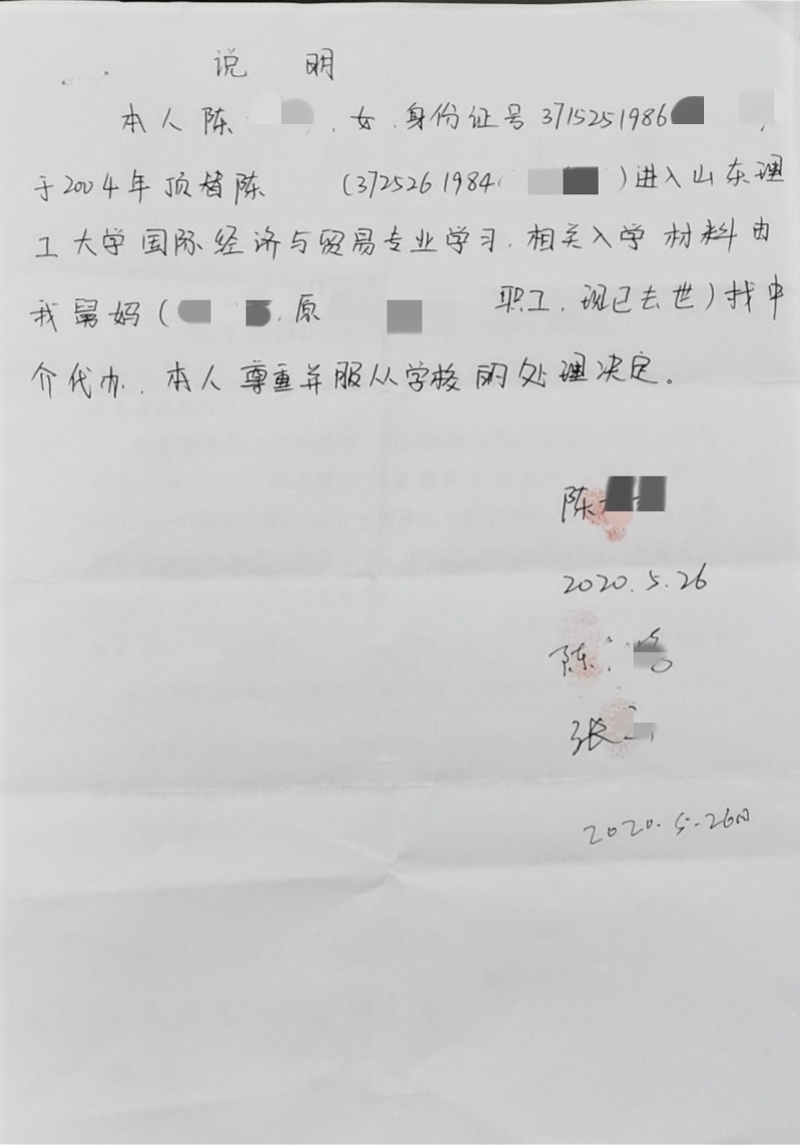 说 明
本人陈 ，女，身份证号 3715251986 ，
于2004年顶替陈 (3725261984 )进入山东理
工大学国际经济与贸易专业学习，相关入学材料由
我舅妈( ，原 职工，现已去世)找中
介代办，本人尊重并服从学校的处理决定。
陈
2020.5.26
陈
张
2020.5.26日